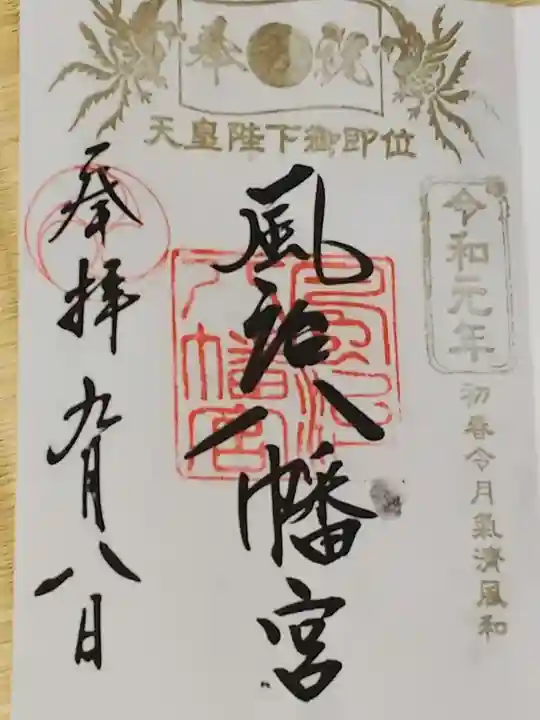 奉祝
天皇陛下御即位
令和元年
初春令月氣淸風和
風治八幡宮
風治八幡宮
奉拝
九月八日